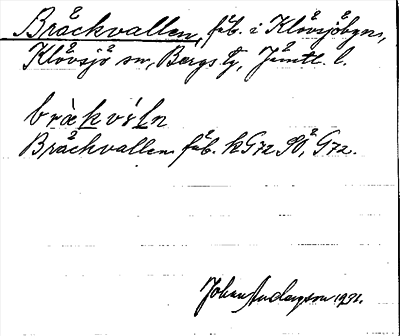 Bräckvallen, fäb. i Klövsjöbyn,
Klövsjö sn, Bergs tg, Jämtl. l.
bràkvíln
Bräckvallen fäb. hG72 SÖ, G72.
Johan Anderson 1931.